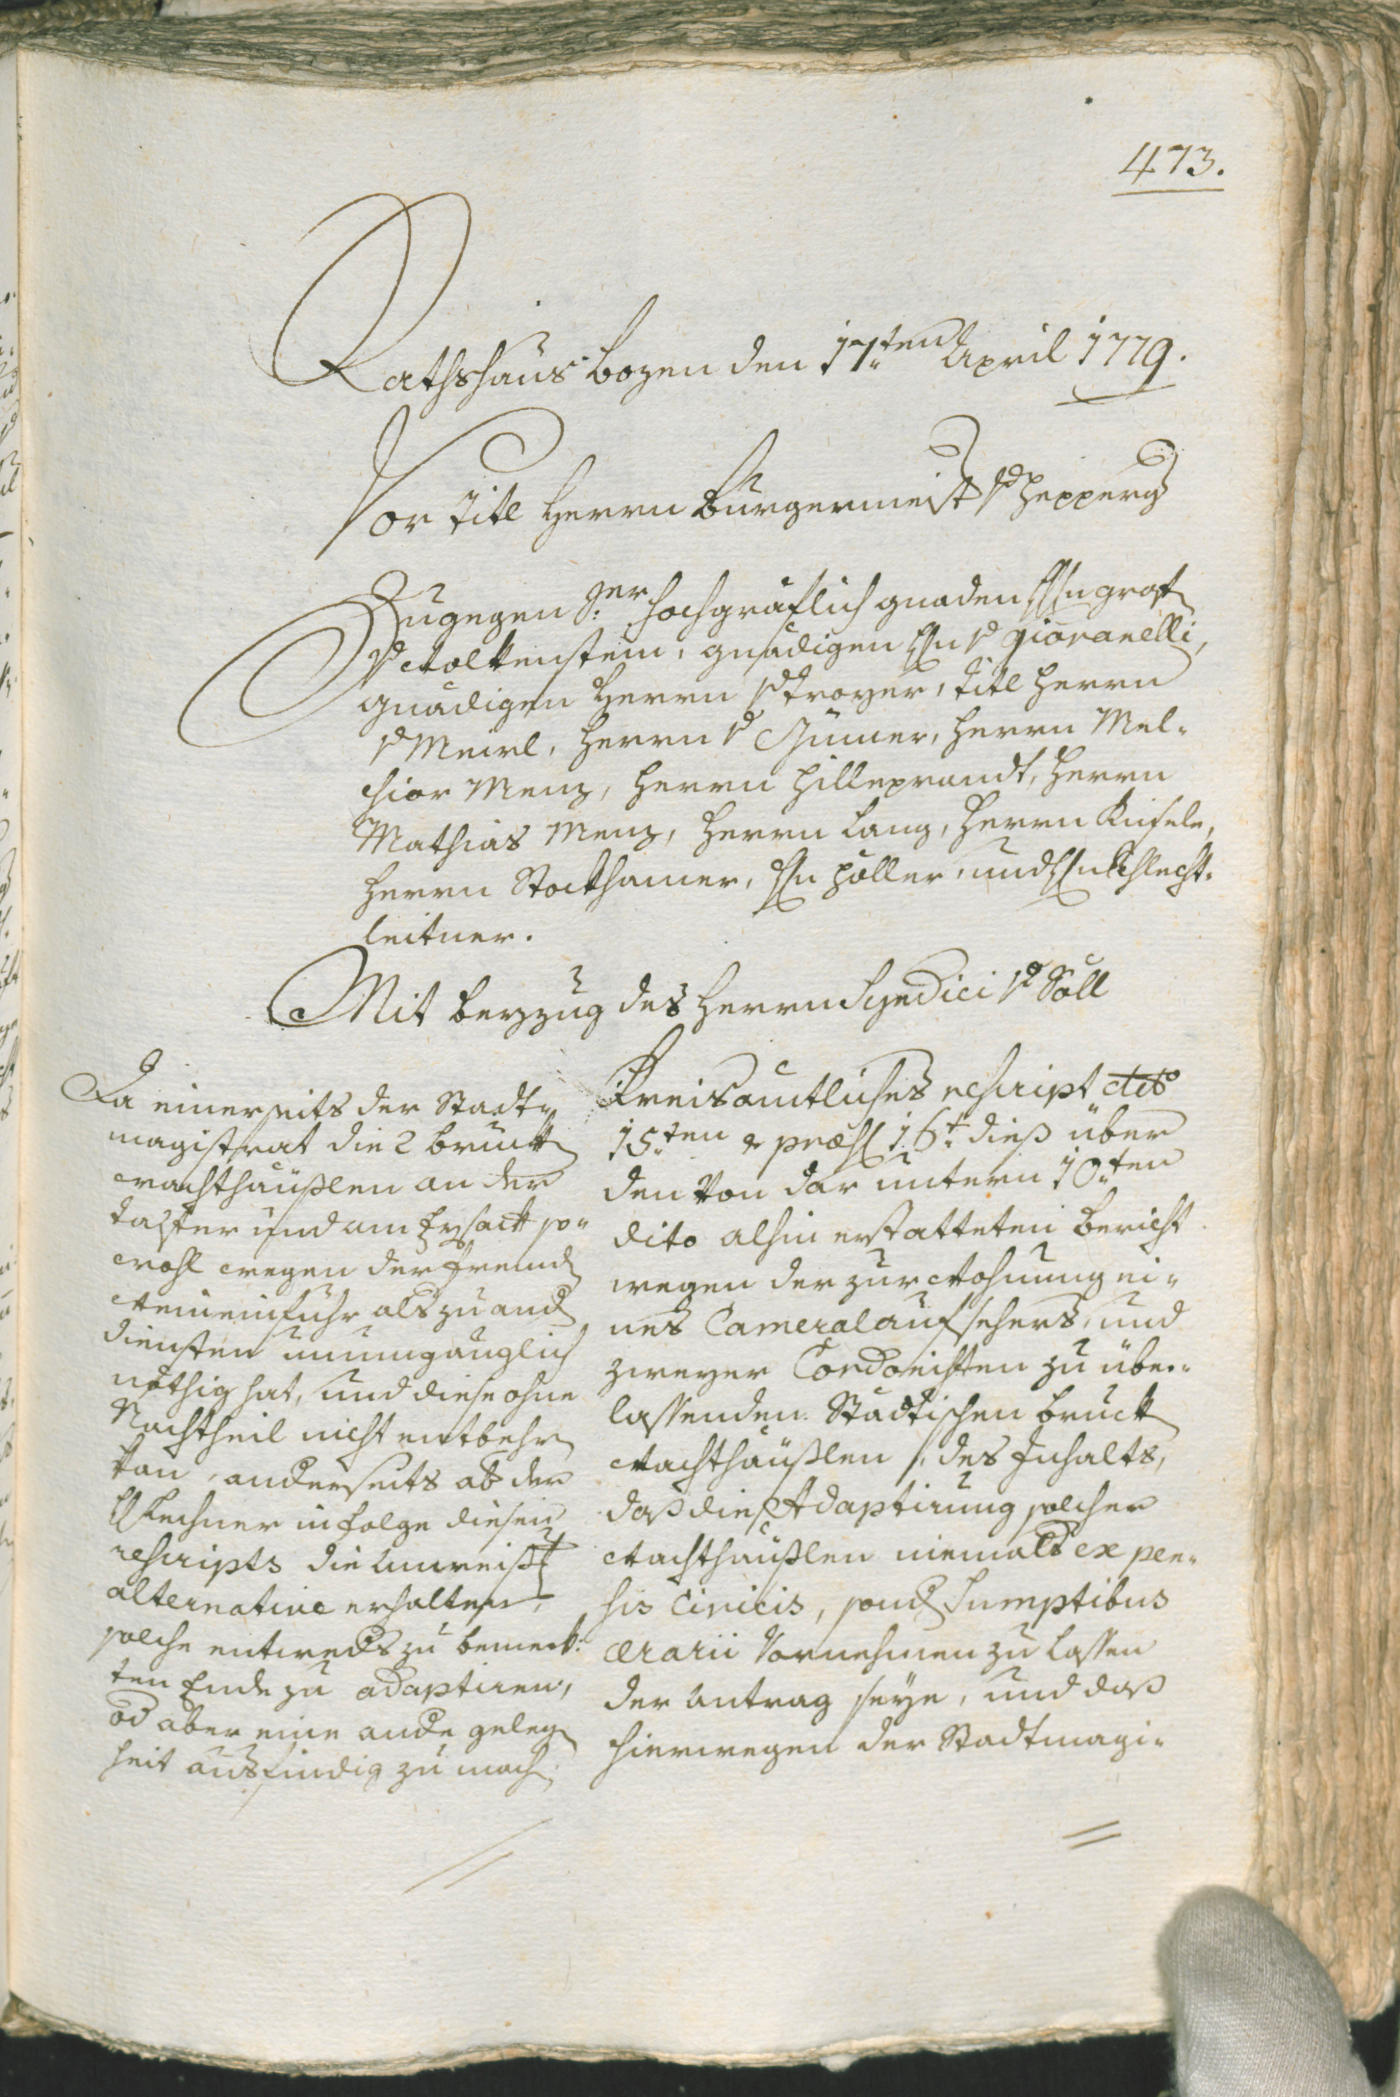 473.
Rathshaus Bozen den 17.ten April 1779.
Vor Titl Herrn Burgermeist v Hepperg
Zugegen S.er hochgräflich gnaden Hn graf
v Wolkenstein, gnädigen Hn v giovanelli,
gnädigen Herrn v Troyer, Titl Herrn
v Meirl, Herrn v Gumer, Herrn Mel-
chior Menz, Herrn Hilleprandt, Herrn
Mathias Menz, Herrn Lang, Herrn Kinsele,
Herrn Stockhamer, Hn Holler, und Hn Schlecht-
leitner.
Mit beyzug des Herrn Syndici v Söll
Da einerseits der Stadt-
magistrat die 2 bruck
wachthäußlen an der
talfer und am Eysack so-
wohl wegen der fremd
Weineinfuhr als zu and
diensten unumgänglich
nöthig hat, und diese ohne
Nachtheil nicht entbehrn
kan, anderseits ab der
H Lechner in folge diesen
rescripts die
alternative erhalten,
solche entweders zu bemerk-
ten Ende zu adaptiren,
od aber eine ande gelegen
heit ausfindig zu mach.
Kreisamtliches rescript ddto
15.ten & præs 16.t dieß über
den von dar untern 10.ten
dito alhin erstatteten bericht
wegen der zur Wohnung ei-
nes Cameralaufsehers, und
zweyer Cordonisten zu über-
lassenden Städtischen bruck
Wachthäußlen, des Inhalts,
daß die Adaptirung solcher
Wachthäußlen niemals ex pen-
sis civicis, sond Sumptibus
ærarii vornehmen zu lassen
der antrag seye, und daß
hierwegen der Stadtmagi-